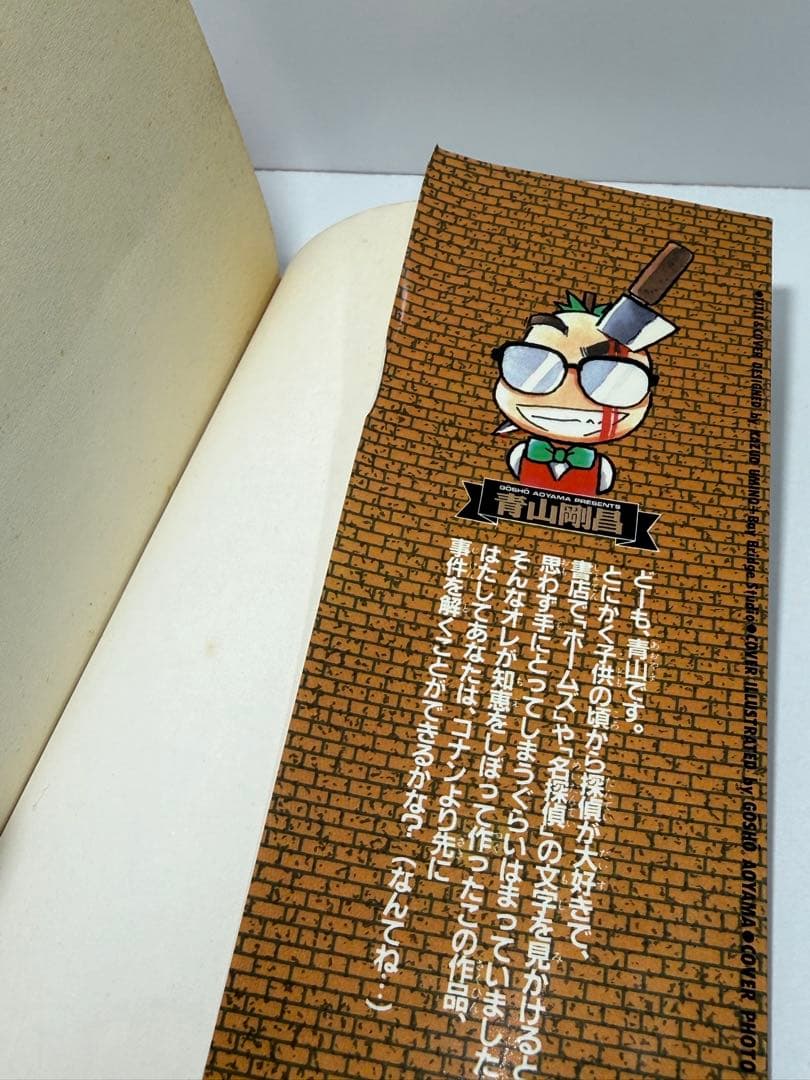 GOSHO AOYAMA PRESENTS
青山剛昌
どーも、青山です。
とにかく子供の頃から探偵が大好きで、
書店で、「ホームズ」や「名探偵」の文字を見かけると
思わず手にとってしまうぐらいはまっていました
そんなオレが知恵をしぼって作ったこの作品、
はたしてあなたは、コナンより先に
事件を解くことができるかな?(なんてね…)
●TITLE & COVER DESIGNED by KAZUO UMINO + Bay Bridge Studio ●COVER ILLUSTRATED by GOSHO AOYAMA ●COVER PHOTO